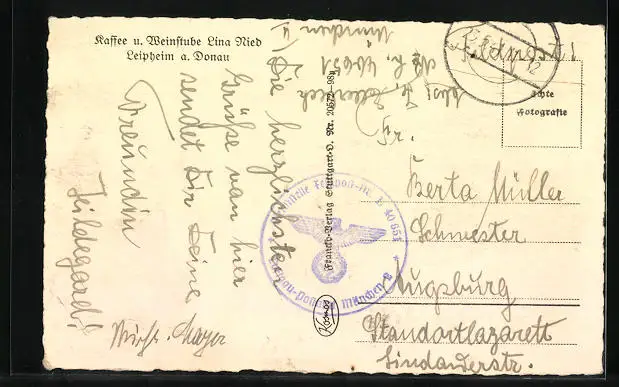 Kaffee u. Weinstube Lina Nied
Leipheim a. Donau
Die herzlichsten
Grüße von hier
sendet Dir Deine
Freundin
Hildegard!
Mayer
L 40651
München
Feldpost!
Echte
Fotografie
Franckh-Verlag Stuttgart-O. Nr. 20572-98y
Kosmos
Feldpost-Nr. L 40 651
München 2
Fr.
Berta Müller
Schwester
Augsburg
Standortlazarett
Lindauerstr.